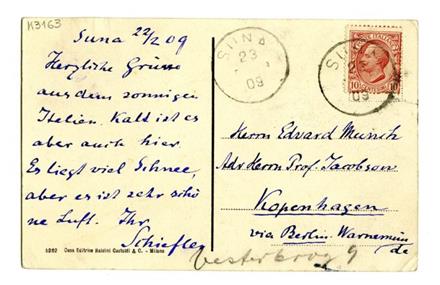 K3163
Suna 22/2 09
Herzliche Grüsse
aus dem sonnigen
Italien. Kalt ist es
aber auch hier.
Es liegt viel Schnee,
aber es ist sehr schö
ne Luft. Ihr
Schiefler
SUNA
23
09
SUNA
09
POSTE ITALIANE
10 10
Herrn Edvard Munch
Adr Herrn Prof. Jacobson
Kopenhagen
via Berlin-Warnemün
de
Vesterbrog 9
5262 Casa Editrice Baldini Castoldi & C. - Milano